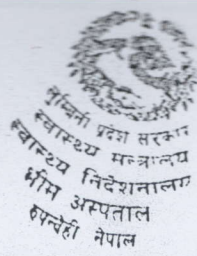 लुम्बिनी प्रदेश सरकार
स्वास्थ्य मन्त्रालय
स्वास्थ्य निदेशनालय
भीम अस्पताल
रुपन्देही नेपाल